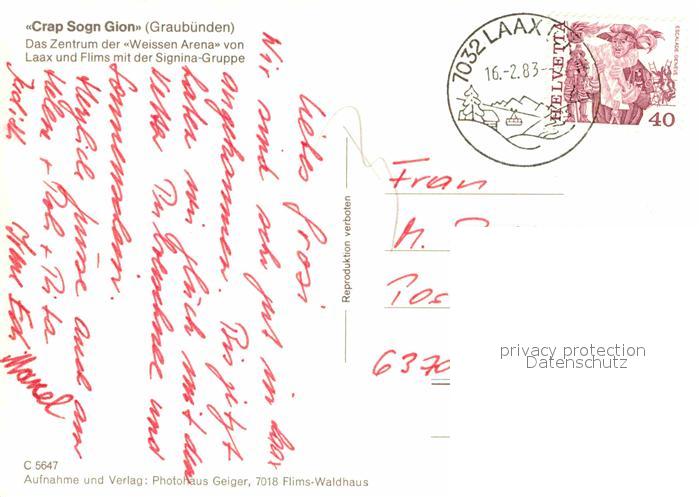 «Crap Sogn Gion» (Graubünden)
Das Zentrum der «Weissen Arena» von
Laax und Flims mit der Signina-Gruppe
Liebs Grosi
Wir sind sehr gut in Laax
angekommen. Bis jetzt
haben wir Glück mit dem
Wetter Pulverschnee und
Sonnenschein.
Herzlich Grüsse auch an
Helen + Rob + Rita
Manuel
Reproduktion verboten
7032 LAAX
16.-2.83-
HELVETIA
ESCALADE GENEVE
40
Frau
M.
Pos
6370
privacy protection
Datenschutz
C 5647
Aufnahme und Verlag: Photohaus Geiger, 7018 Flims-Waldhaus